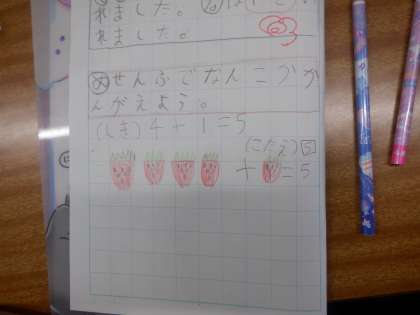 れました。
れました。
6つ
め せんぶでなんこかか
んがえよう。
(しき) 4+1=5
(こたえ) 5
+ =5